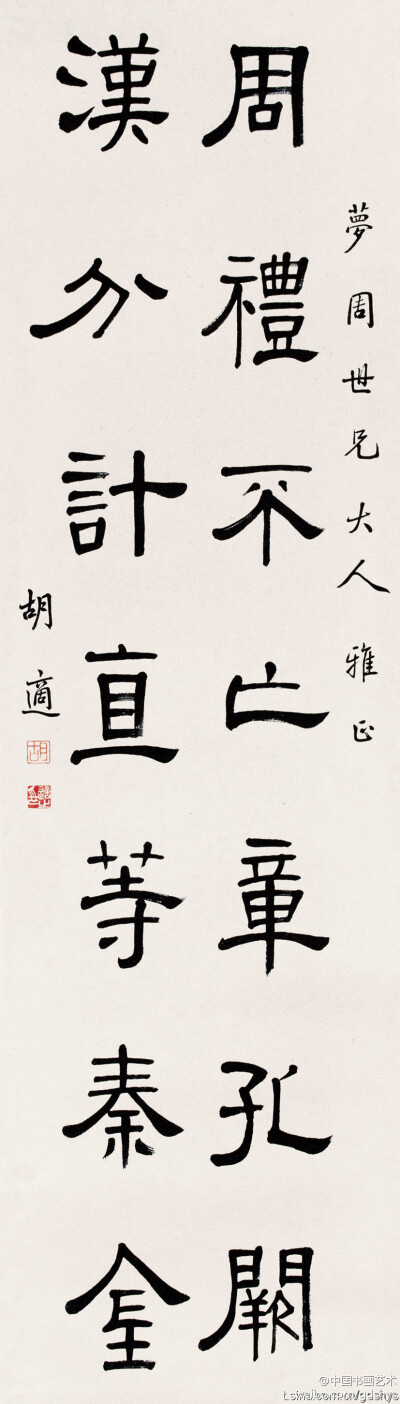 夢周世兄大人 雅正
周禮不亡章孔闕
漢分計直等秦金
胡適
胡
@中国书画艺术